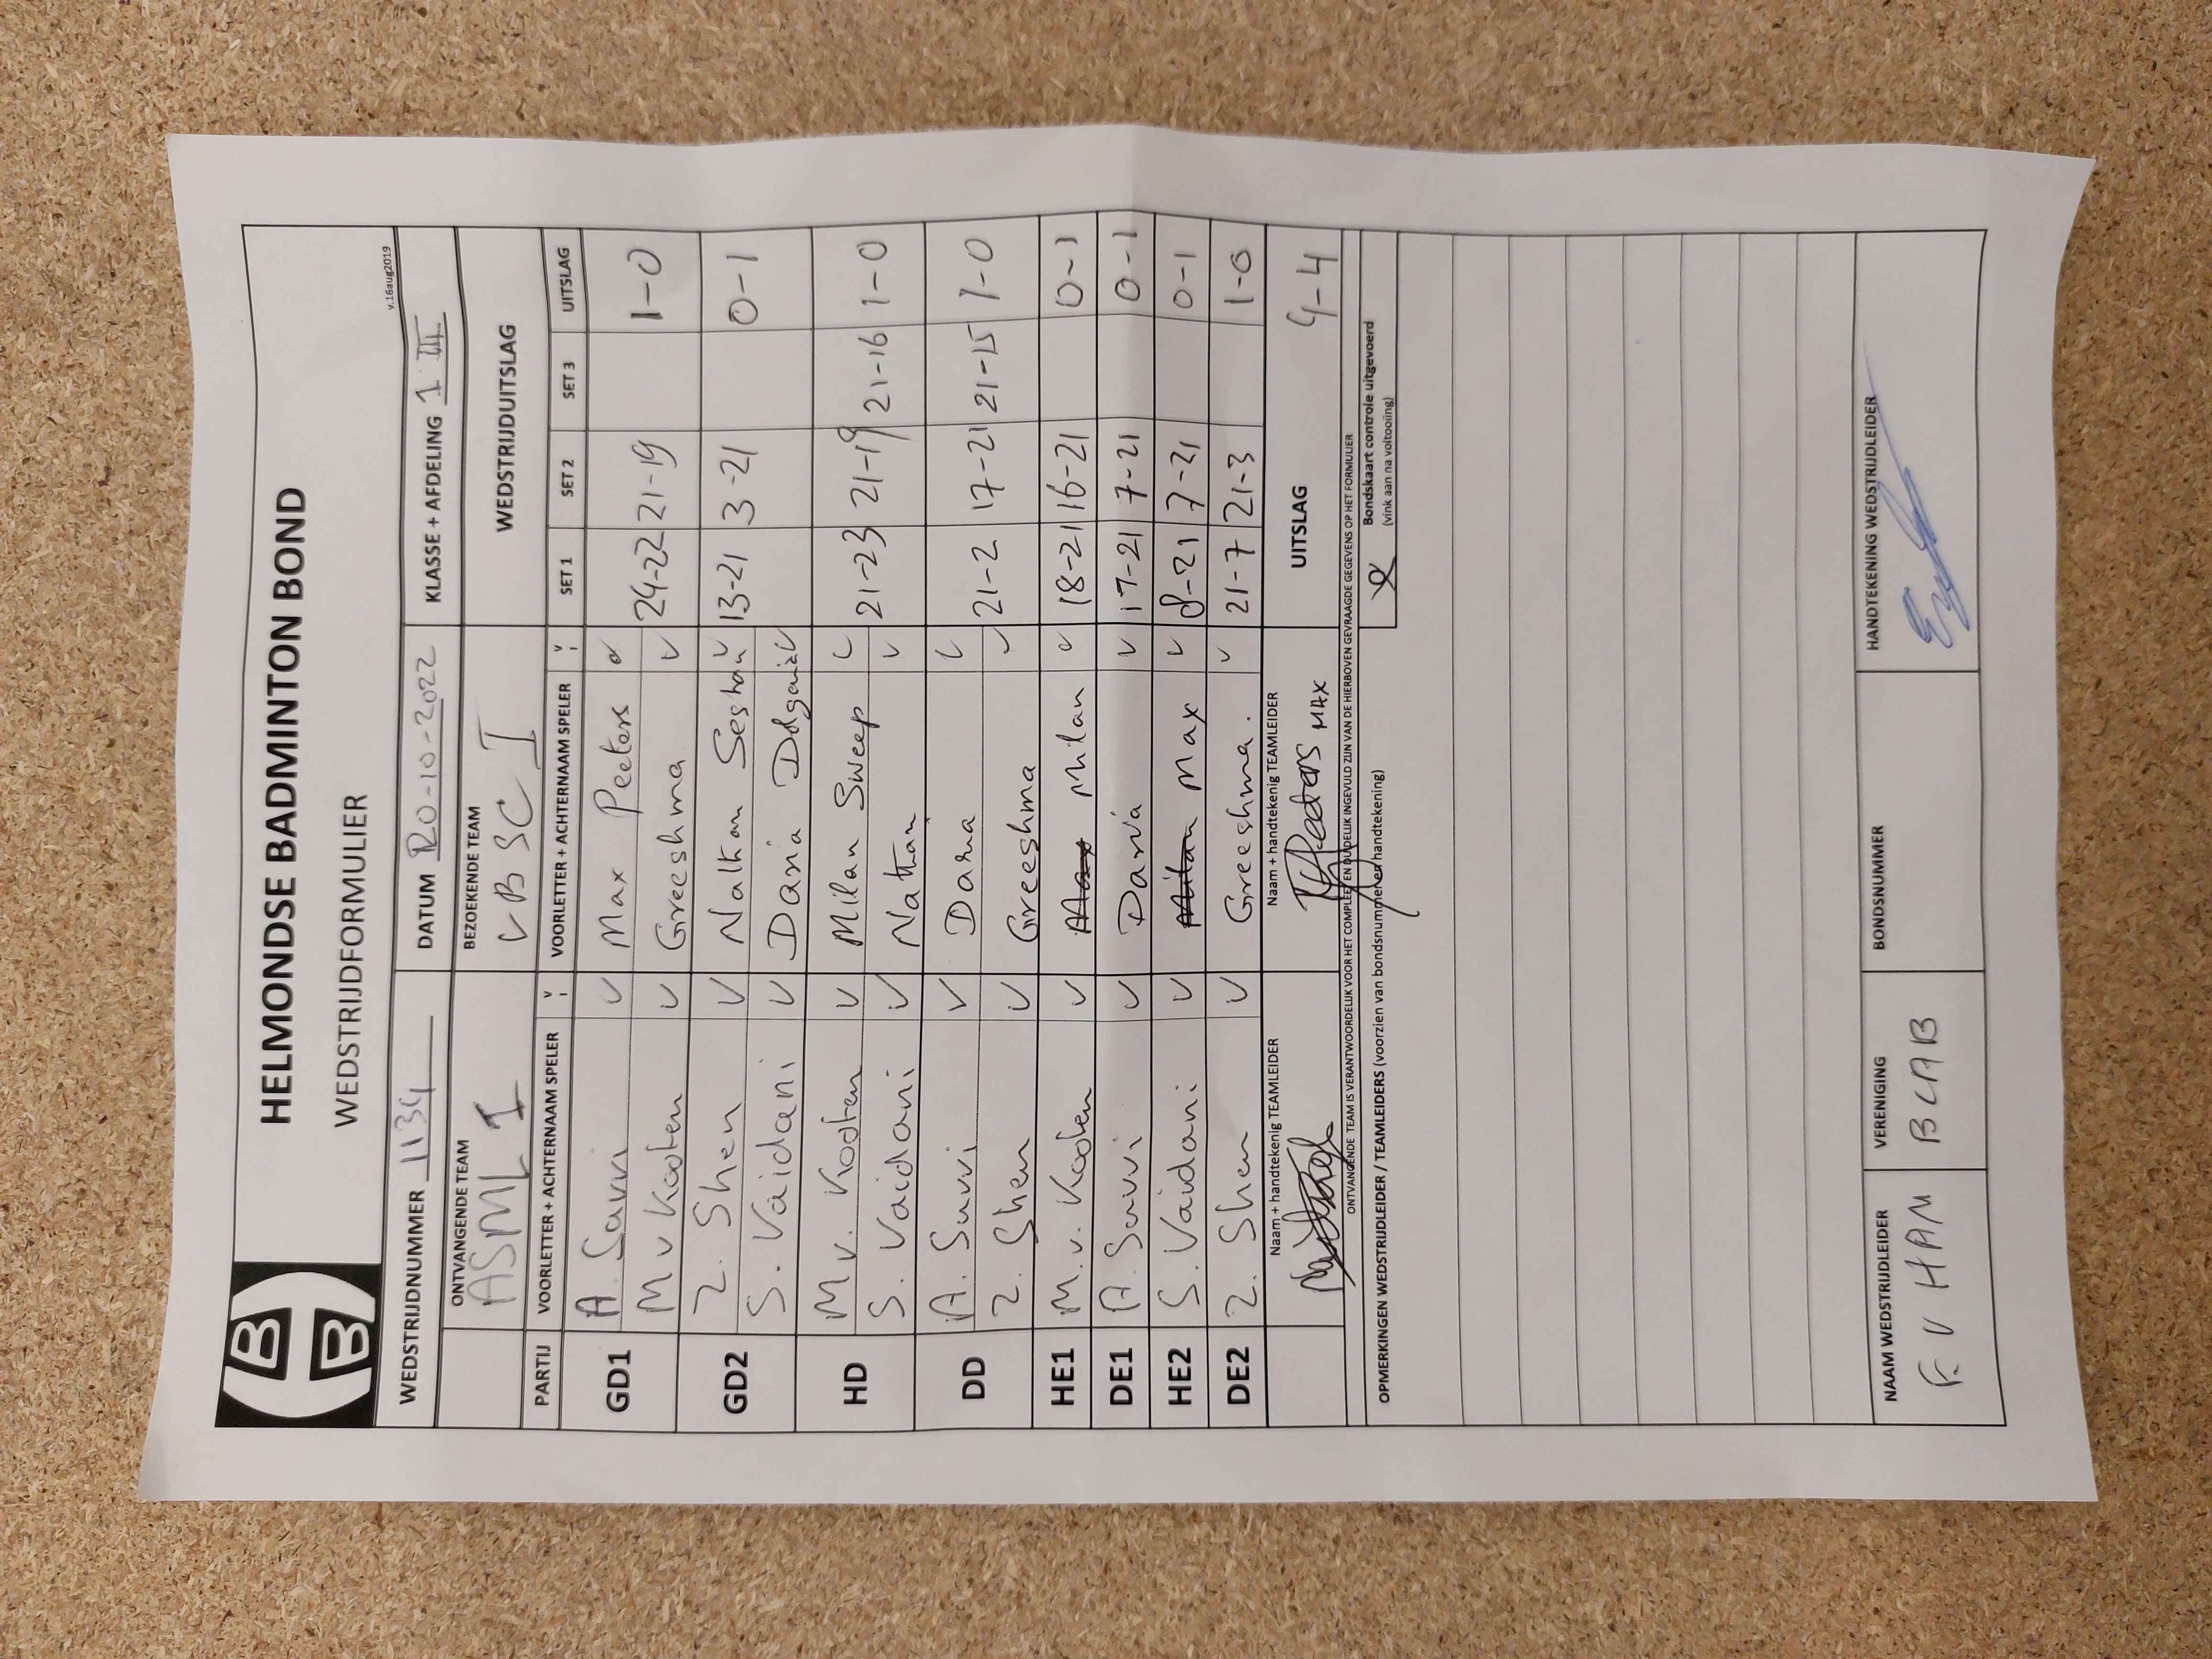 HELMONDSE BADMINTON BOND
WEDSTRIJDFORMULIER
v.16aug2019
WEDSTRIJDNUMMER 1134 DATUM 20-10-2022 KLASSE + AFDELING 1 III
ONTVANGENDE TEAM BEZOEKENDE TEAM WEDSTRIJDUITSLAG
ASML 1 VBSC I
PARTIJ VOORLETTER + ACHTERNAAM SPELER V VOORLETTER + ACHTERNAAM SPELER V SET 1 SET 2 SET 3 UITSLAG
GD1 A. Savvi Max Peeters
M v Kooten Greeshma 24-22 21-19 1-0
GD2 Z. Shen Nathan 13-21 3-21 0-1
S. Vaidani Daria
HD M v. Kooten Milan Sweep
S. Vaidani Nathan 21-23 21-19 21-16 1-0
DD A. Savvi Daria
Z. Shen Greeshma 21-2 17-21 21-15 1-0
HE1 M. v. Kooten Max Milan 18-21 16-21 0-1
DE1 A. Savvi Daria 17-21 7-21 0-1
HE2 S. Vaidani Milan Max 8-21 7-21 0-1
DE2 Z. Shen Greeshma. 21-7 21-3 1-0
Naam + handtekenig TEAMLEIDER Naam + handtekenig TEAMLEIDER UITSLAG 4-4
Peeters MAX
ONTVANGENDE TEAM IS VERANTWOORDELIJK VOOR HET COMPLEET EN DUIDELIJK INGEVULD ZIJN VAN DE HIERBOVEN GEVRAAGDE GEGEVENS OP HET FORMULIER
OPMERKINGEN WEDSTRIJDLEIDER / TEAMLEIDERS (voorzien van bondsnummer en handtekening)
Bondskaart controle uitgevoerd
(vink aan na voltooiing)
NAAM WEDSTRIJDLEIDER VERENIGING BONDSNUMMER HANDTEKENING WEDSTRIJDLEIDER
F. V HAM BCAB